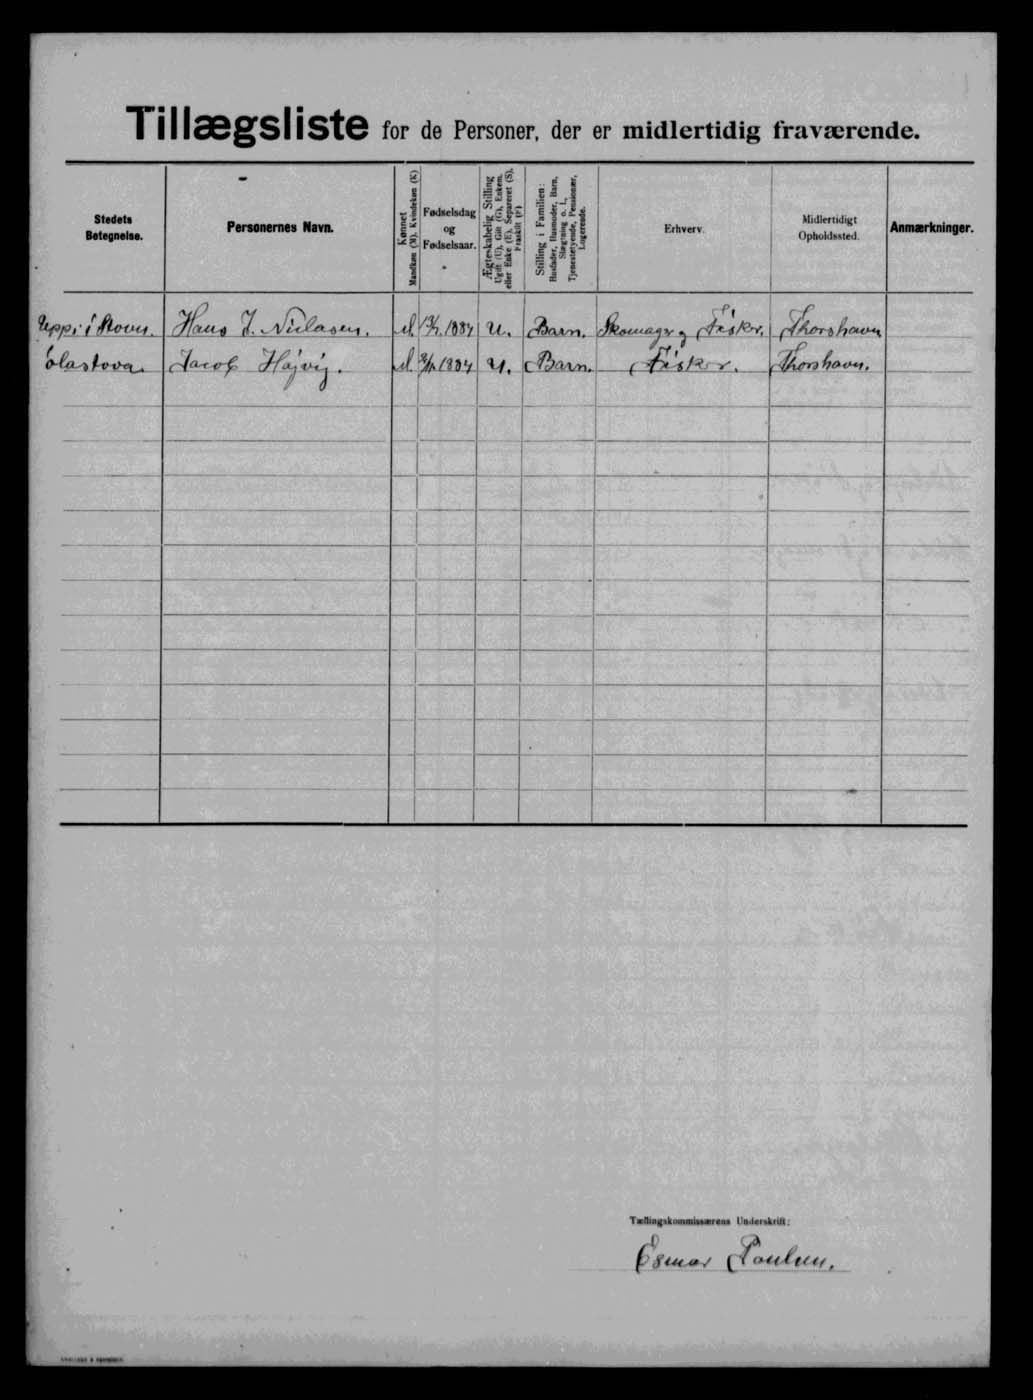 Tillægsliste for de Personer, der er midlertidig fraværende.
Stedets Betegnelse.
Personernes Navn.
Kønnet
Mandkøn (M). Kvindekøn (K)
Fødselsdag
og
Fødselsaar.
Ægteskabelig Stilling
Ugift (U), Gift (G), Enkem.
eller Enke (E), Separeret (S),
Fraskilt (F)
Stilling i Familien:
Husfader, Husmoder, Barn,
Slægtning o. l.,
Tjenestetyende, Pensionær,
Logerende.
Erhverv.
Midlertidigt
Opholdssted.
Anmærkninger.
Uppi i Stovu. Hans J. Niclasen. M. 1884 U. Barn. Skomager og Fisker. Thorshavn
Jacob Højvig. M. 1884 U. Barn. Fisker. Thorshavn.
Tællingskommissærens Underskrift:
Esmar Poulsen.